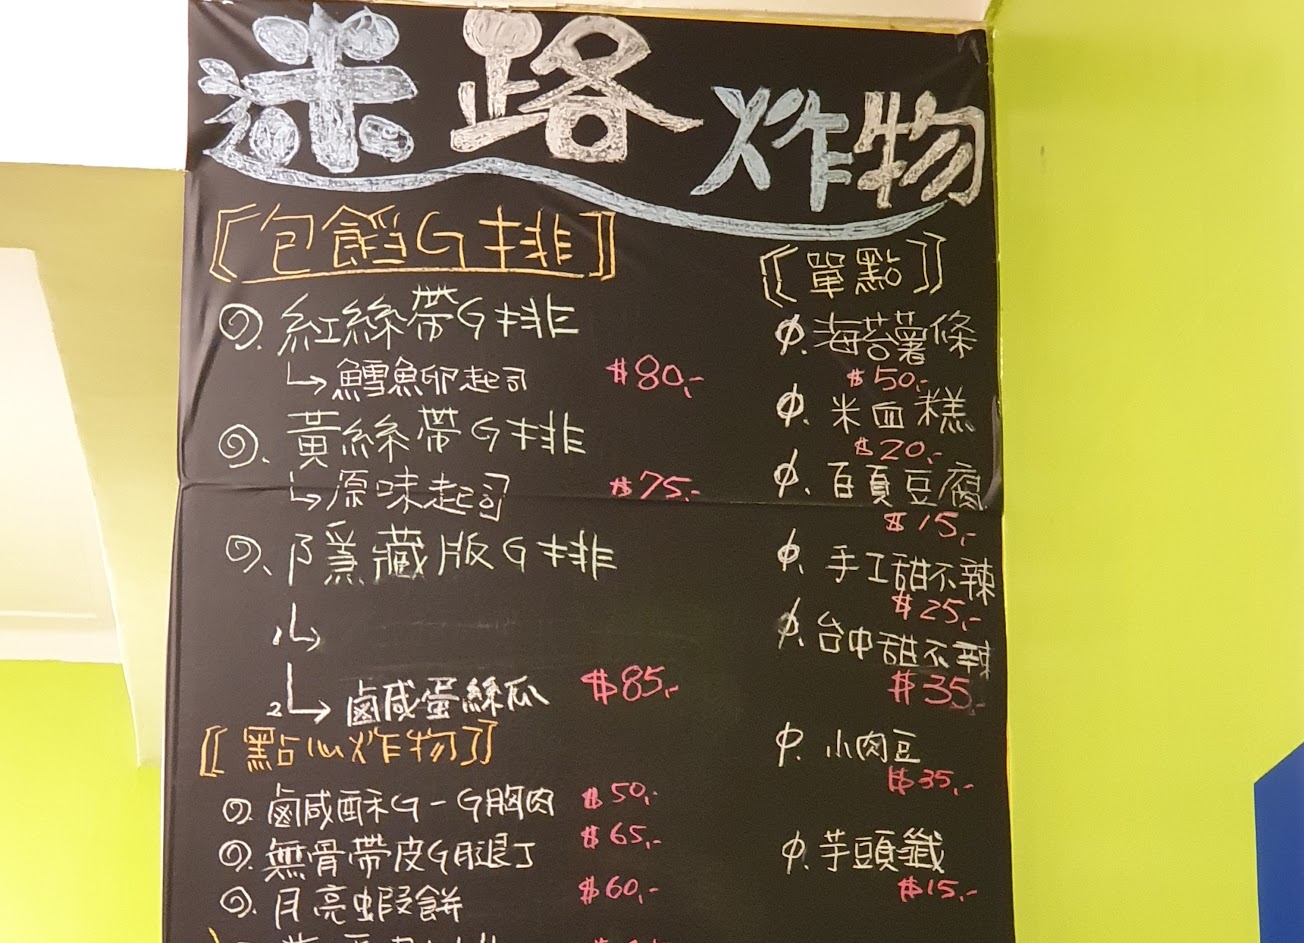 迷路炸物
〖包餡G排〗
紅絲帶G排
↳鱈魚卵起司 $80,-
黃絲帶G排
↳原味起司 $75,-
隱藏版G排
1↳
2↳鹵咸蛋絲瓜 $85,-
〖點心炸物〗
鹵咸酥G-G胸肉 $50,-
無骨帶皮G腿丁 $65,-
月亮蝦餅 $60,-
〖單點〗
海苔薯條
$50,-
米血糕
$20,-
百頁豆腐
$15,-
手工甜不辣
$25,-
台中甜不辣
$35,-
小肉豆
$35,-
芋頭籤
$15,-